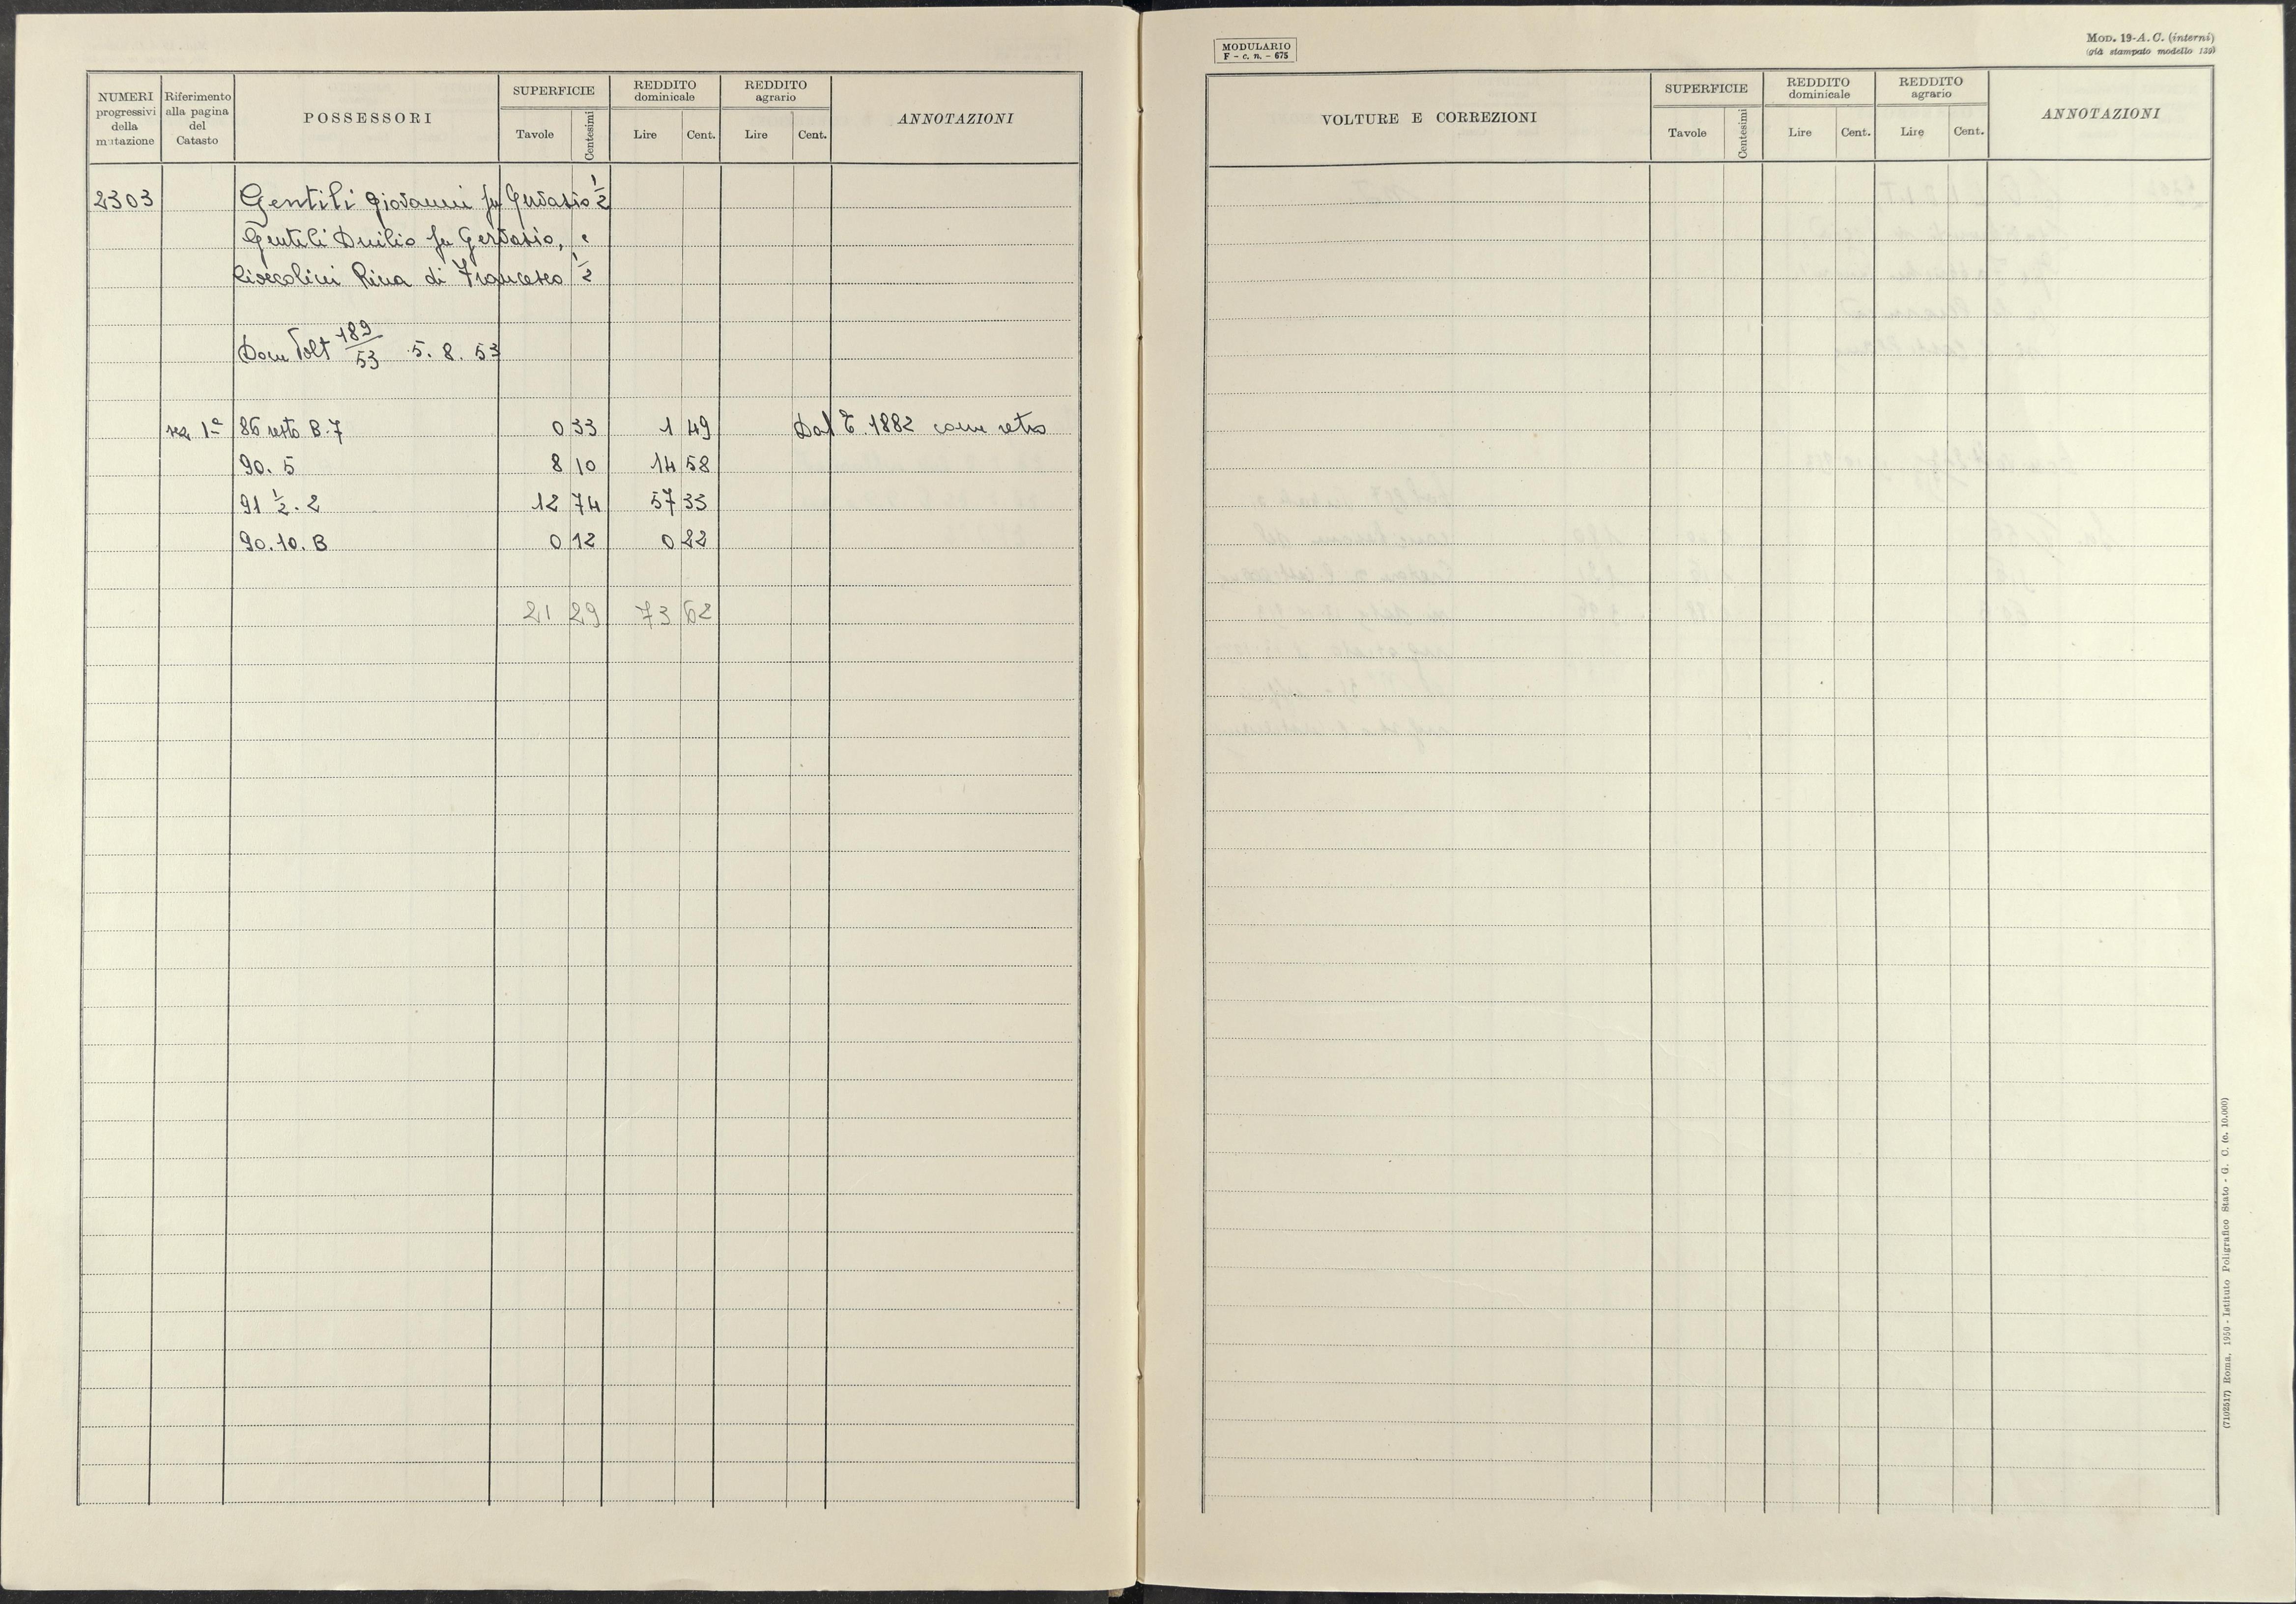 NUMERI progressivi della mutazione
Riferimento alla pagina del Catasto
POSSESSORI
SUPERFICIE
Tavole Centesimi
REDDITO dominicale
Lire Cent.
REDDITO agrario
Lire Cent.
ANNOTAZIONI
2303 Gentili Giovanni fu Gervasio 1/2
Gentili Duilio fu Gervasio, e
Rina di Francesco 1/2
Dom Volt 189/53 5. 8. 53
sez 1ª 86 resto B.7 0 33 1 49 Dal T. 1882 come retro
90. 5 8 10 14 58
91 1/2. 2 12 74 57 33
90. 10. B 0 12 0 22
21 29 73 62
MODULARIO
F - c. n. - 675
MOD. 19-A. C. (interni)
(già stampato modello 139)
VOLTURE E CORREZIONI
SUPERFICIE
Tavole Centesimi
REDDITO dominicale
Lire Cent.
REDDITO agrario
Lire Cent.
ANNOTAZIONI
(7102517) Roma, 1950 - Istituto Poligrafico Stato - G. C. (c. 10.000)